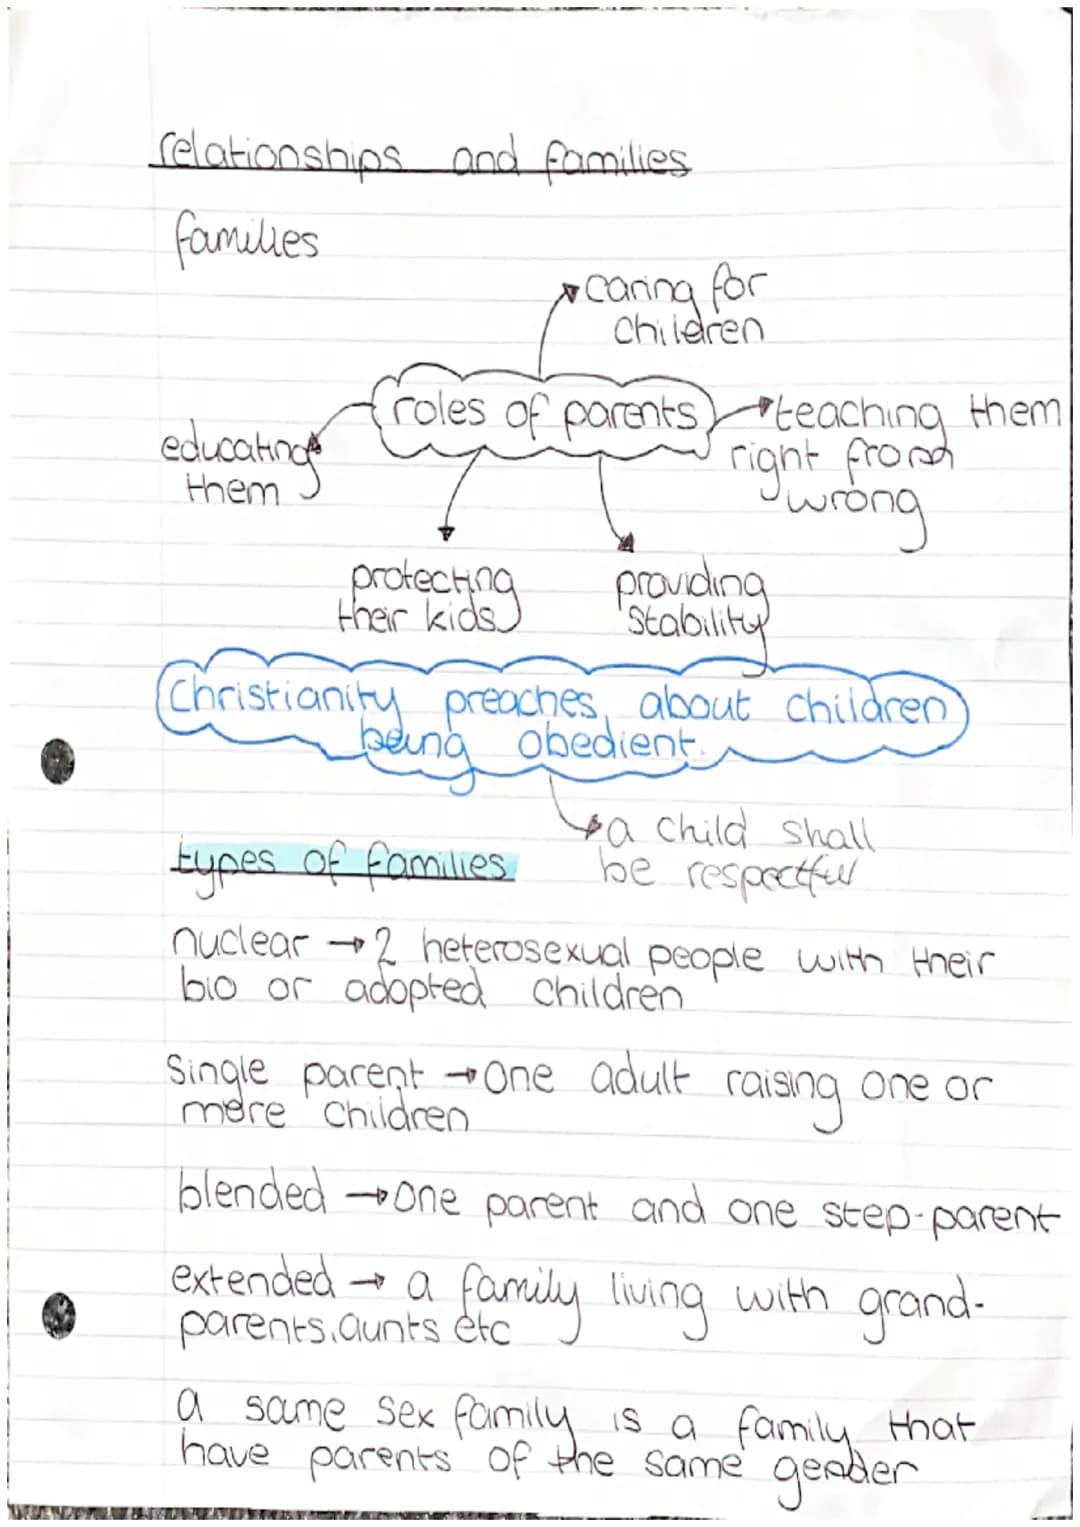 relationships and families
families
caring for
children
roles of parents
teaching them
right from
wrong
educating
them
protecting
their kids
providing
stability
Christianity preaches about children
being obedient.
a child shall
be respectful
types of families
nuclear → 2 heterosexual people with their
bio or adopted children
single parent → one adult raising one or
more children
blended → one parent and one step-parent
extended → a family living with grand-
parents, aunts etc
a same sex family is a family that
have parents of the same gender